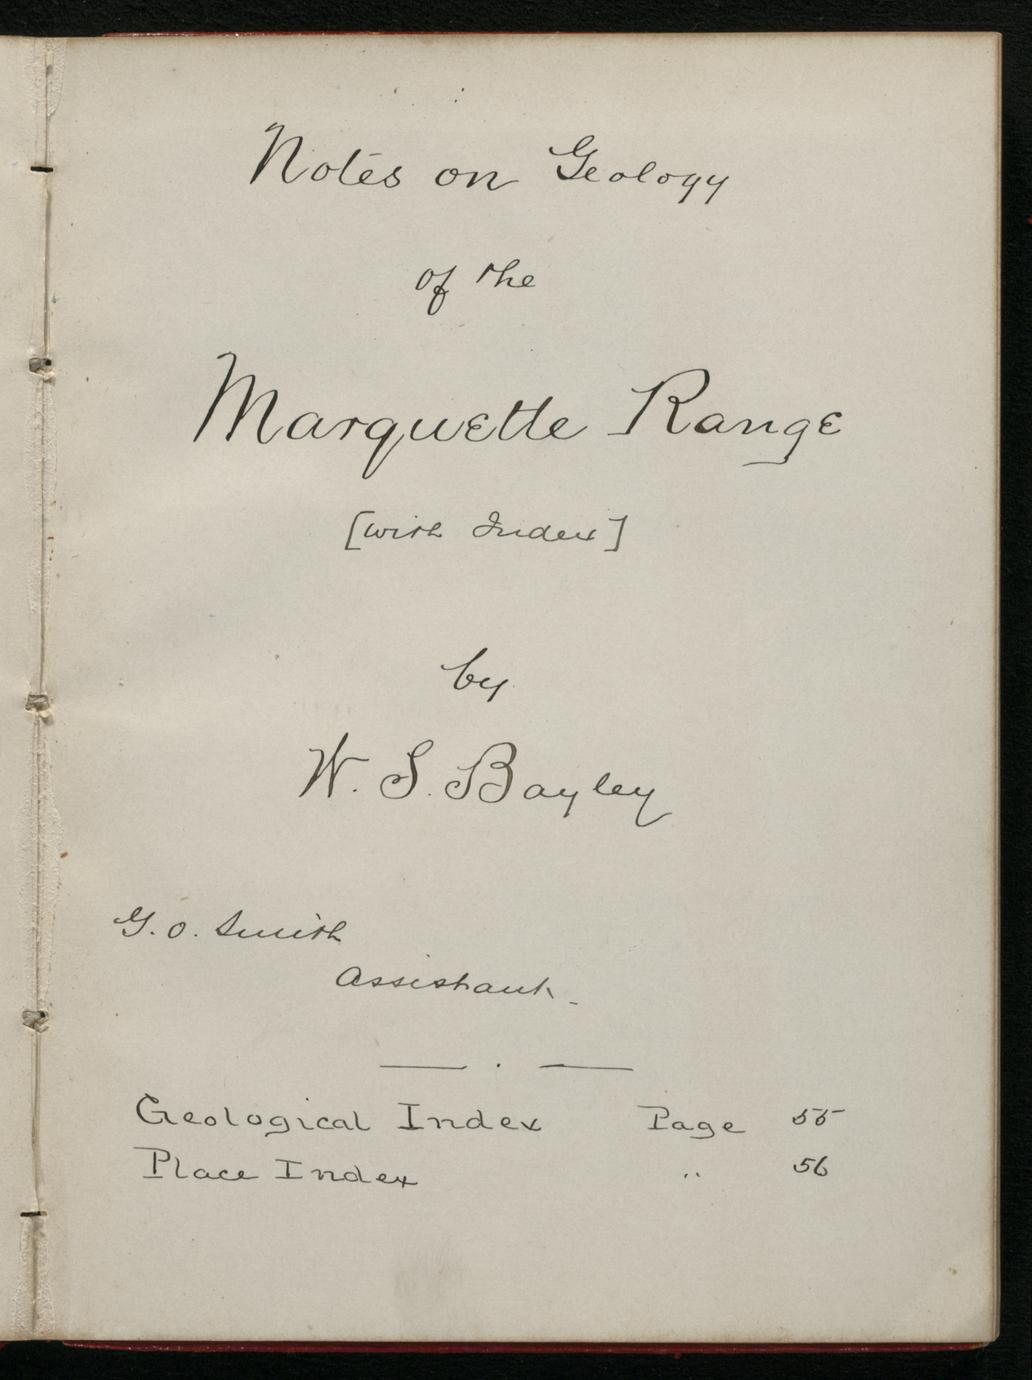 Notes on Geology
of the
Marquette Range
[with Index]
by
W. S. Bayley
G. O. Smith
Assistant.
Geological Index Page 55
Place Index " 56